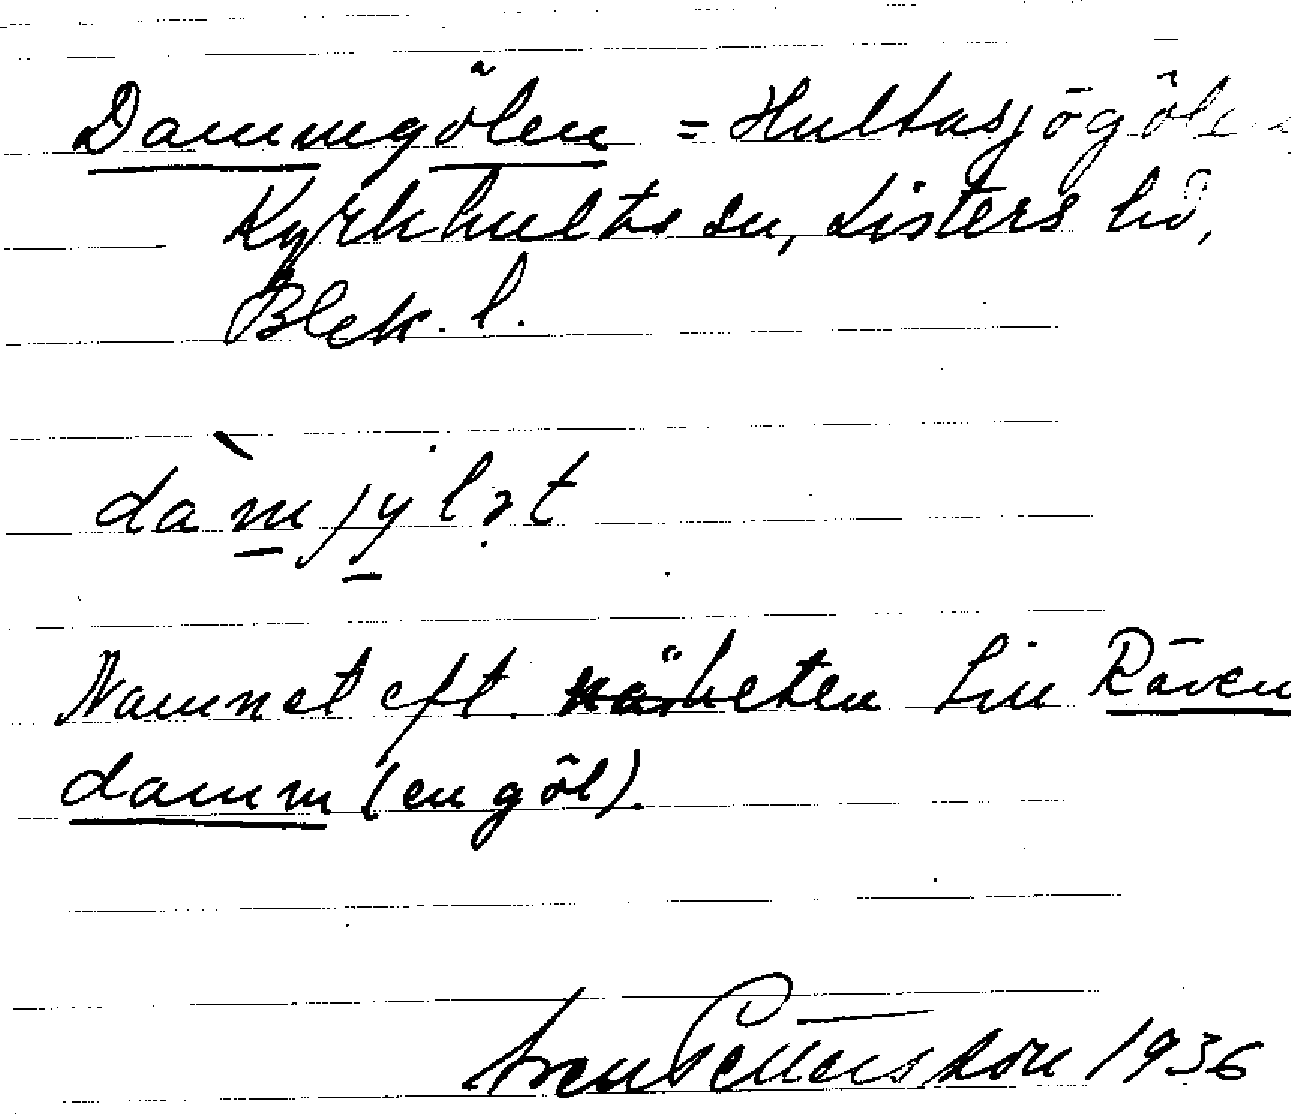 Dammgölen = Hultasjögöl
Kyrkhults sn, Listers hd,
Blek. l.
dàmjylət
Namnet eft. närheten till Räven
damm (en göl).
Sven Pettersson 1936